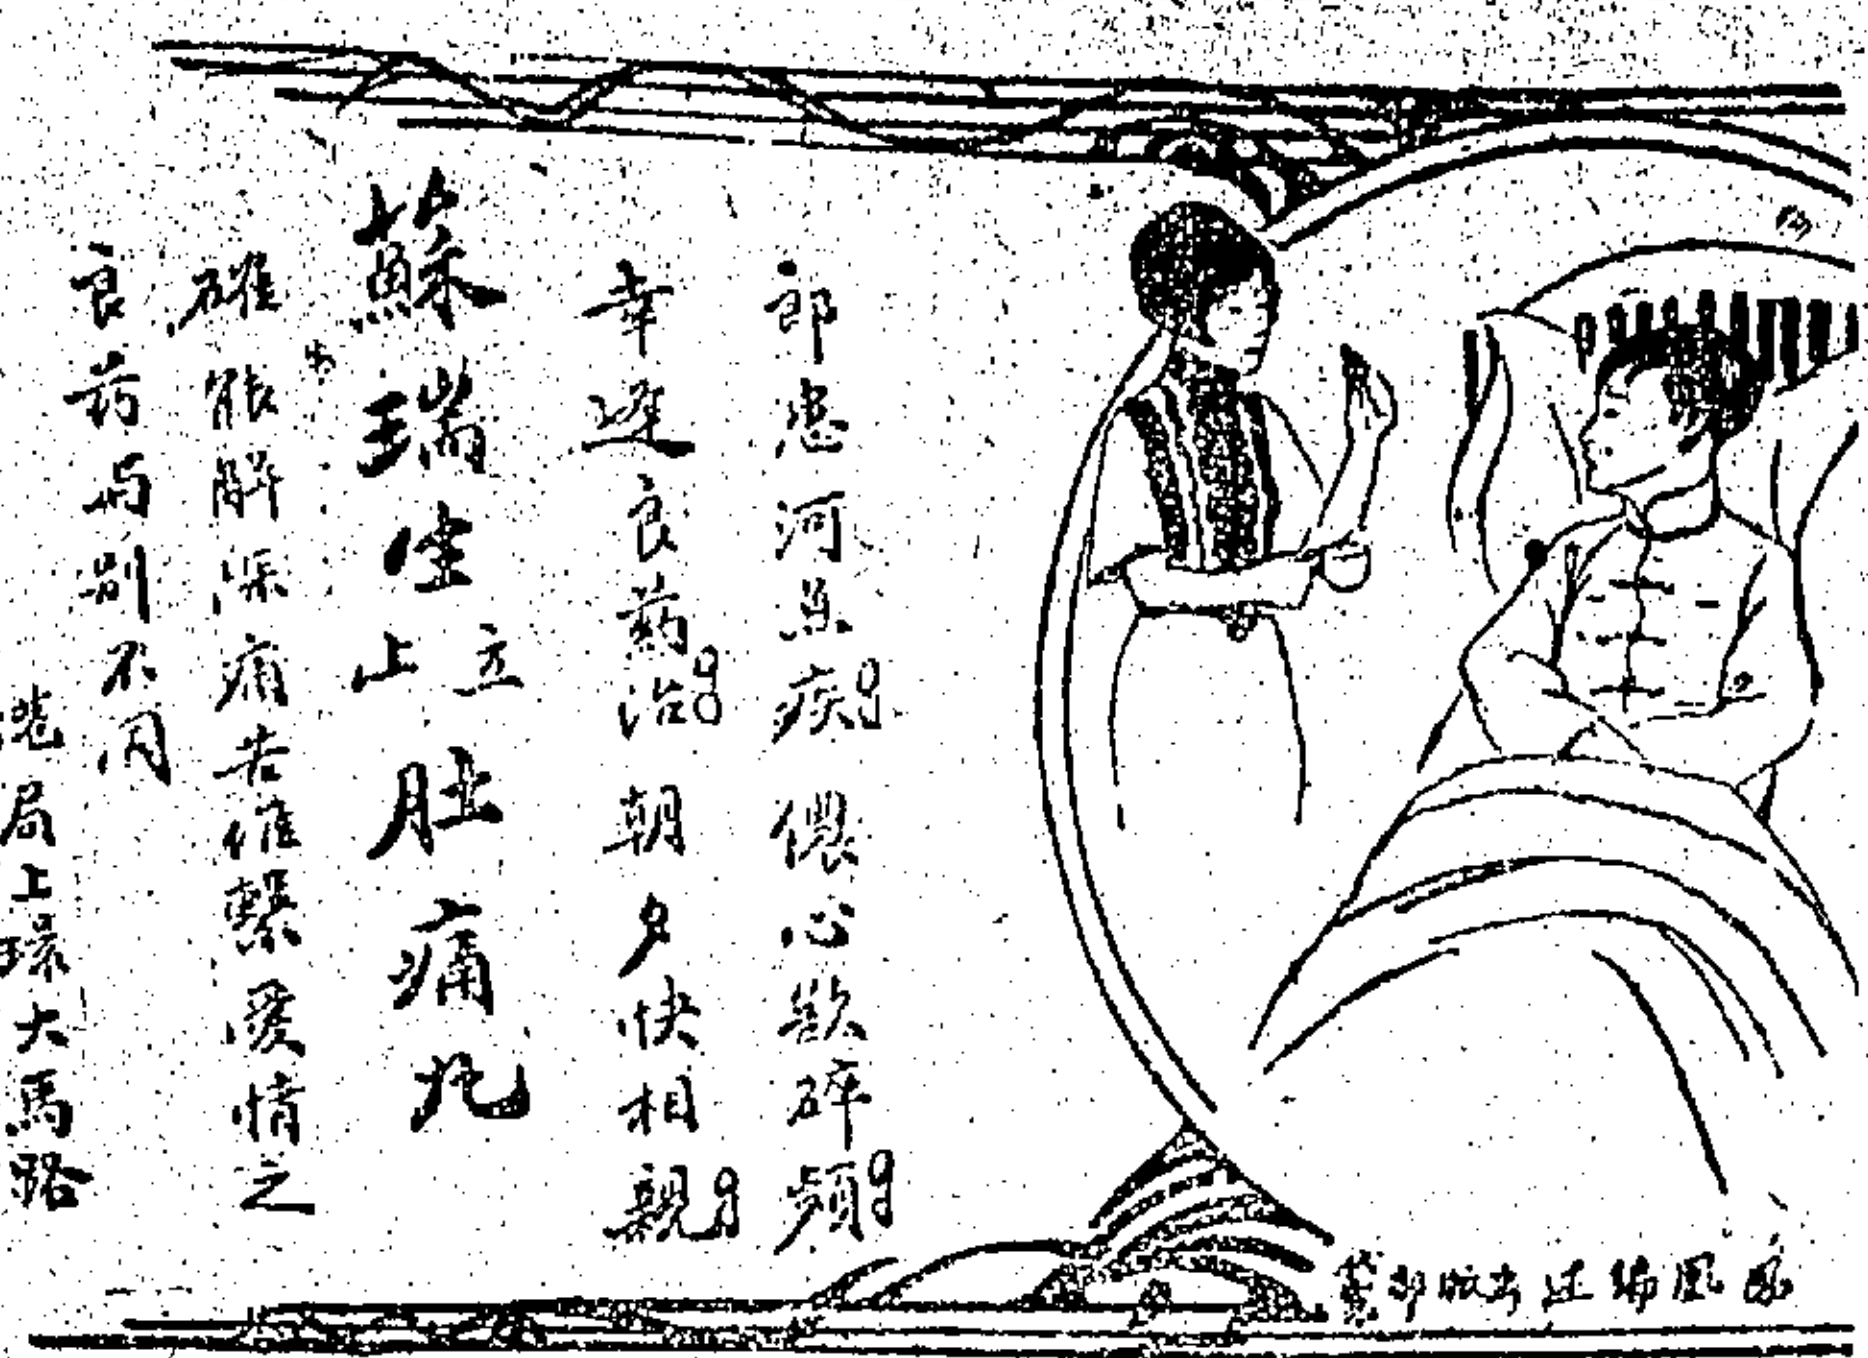 郎患河魚疾 儂心欲碎頻
幸逢良葯治 朝夕快相親
蘇瑞生立止肚痛丸
確能解除痛苦維繫愛情之
良药与别不同
港局上環大馬路